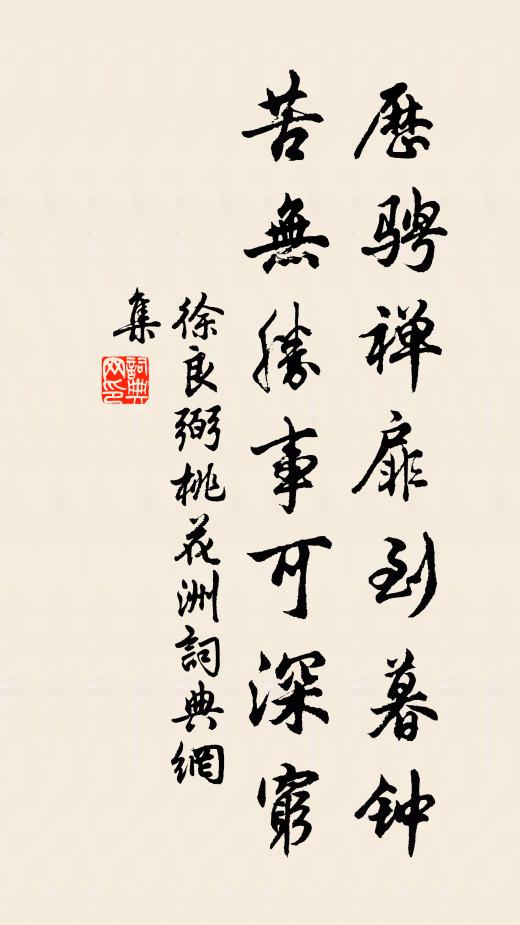 历骋禅扉到暮钟
苦無勝事可深窮
徐良弼桃花洲詞典網
集
詞典
网印